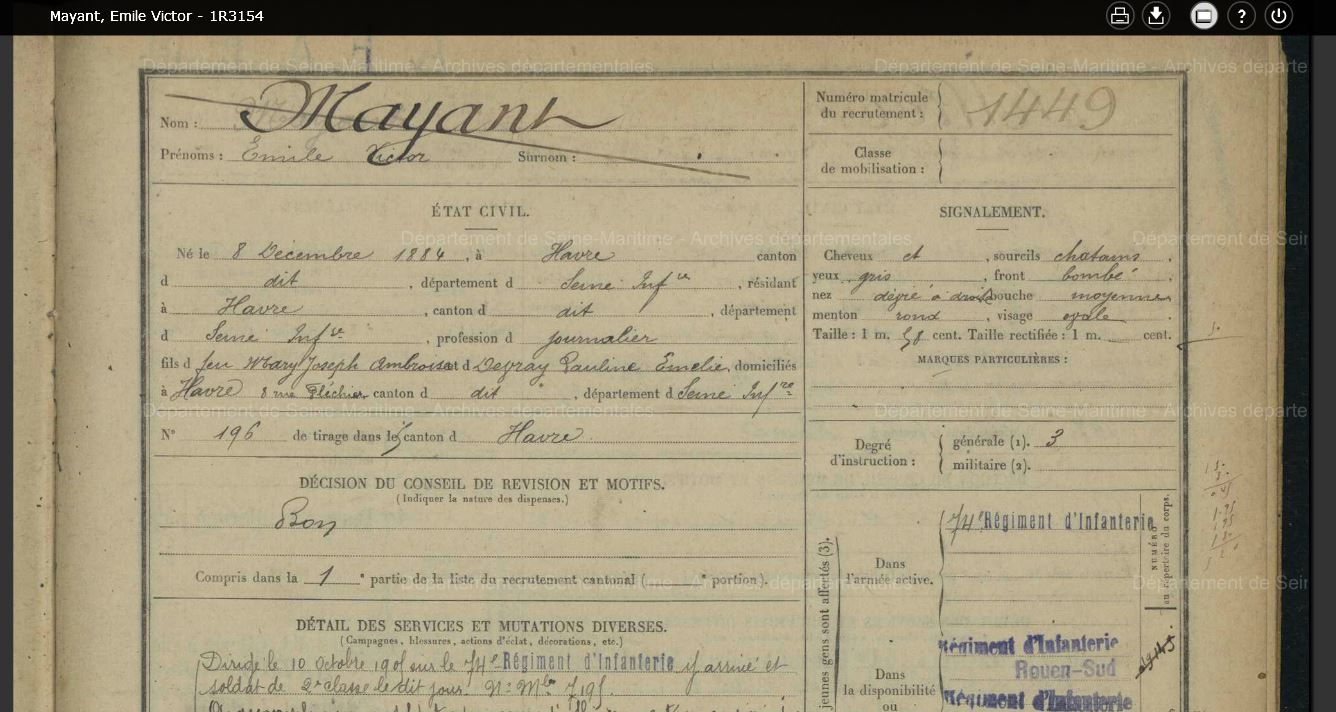 Mayant, Emile Victor - 1R3154
Département de Seine-Maritime - Archives départementales
Département de Seine-Maritime - Archives départe
Nom : Mayant
Prénoms : Emile Victor Surnom :
Numéro matricule
du recrutement : 1449
Classe
de mobilisation :
ÉTAT CIVIL.
Né le 8 Decembre 1884, à Havre canton
d dit, département d Seine Infre, résidant
à Havre, canton d dit, département
d Seine Infre, profession d journalier
fils d feu Mary Joseph Ambroise et d Pauline Emelie, domiciliés
à Havre 8 rue Fléchier canton d dit, département d Seine Infre
N° 196 de tirage dans le canton d Havre
SIGNALEMENT.
Cheveux et, sourcils chatains.
yeux gris, front bombé.
nez à droite bouche moyenne
menton rond, visage ovale
Taille : 1 m. 58 cent. Taille rectifiée : 1 m. cent.
MARQUES PARTICULIÈRES :
Département de Seine-Maritime - Archives départementales
Département de Sein
Département de Seine-Maritime - Archives départementales
Département de Seine-Maritime - Archives départe
Degré
d'instruction :
générale (1). 3
militaire (2).
DÉCISION DU CONSEIL DE REVISION ET MOTIFS.
(Indiquer la nature des dispenses.)
Bon
Compris dans la 1e partie de la liste du recrutement cantonal ( e portion).
Département de Seine-Maritime - Archives départementales
Département de Sein
DÉTAIL DES SERVICES ET MUTATIONS DIVERSES.
(Campagnes, blessures, actions d'éclat, décorations, etc.)
Dirigé le 10 Octobre 1905 sur le 74e Régiment d'Infanterie y arrivé et
soldat de 2e classe le dit jour. No Mle
jeunes gens sont affectés (3).
Dans
l'armée active.
74e Régiment d'Infanterie
NUMÉRO
au répertoire du corps.
Dans
la disponibilité
ou
Régiment d'Infanterie
Rouen-Sud
Régiment d'Infanterie